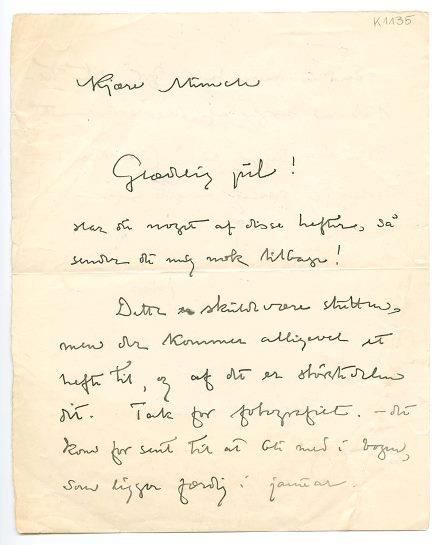 K1135
Kjære Munch
Glædelig jul!
Har du noget af disse hefter, så
sender du mig nok tilbage!
Dette skulde være slutten,
men der kommer alligevel et
hefte til, og af det er størstedelen
dit. Tak for fotografiet. – det
kom for sent til at bli med i bogen,
som ligger færdig i januar.